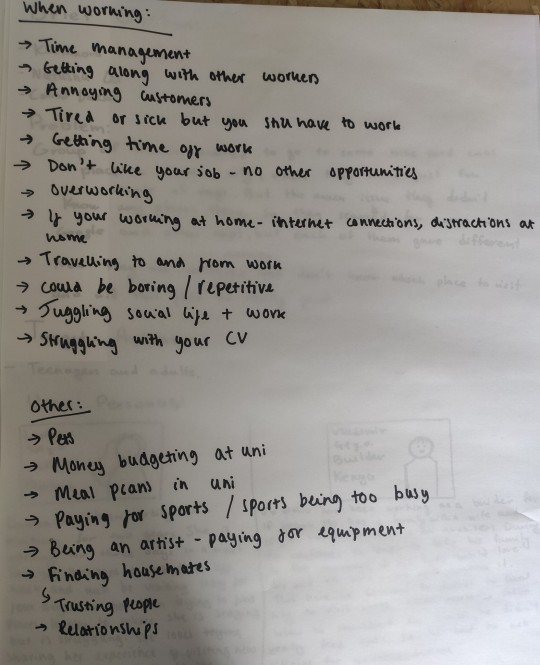 When working:
→ Time management
→ Getting along with other workers
→ Annoying customers
→ Tired or sick but you still have to work
→ Getting time off work
→ Don't like your job - no other opportunities
→ Overworking
→ If your working at home - internet connections, distractions at
home
→ Travelling to and from work
→ could be boring / repetitive
→ Juggling social life + work
→ Struggling with your CV
Other:
→ Pets
→ Money budgeting at uni
→ Meal plans in uni
→ Paying for sports / sports being too busy
→ Being an artist - paying for equipment
→ Finding housemates
↳ Trusting people
→ Relationships